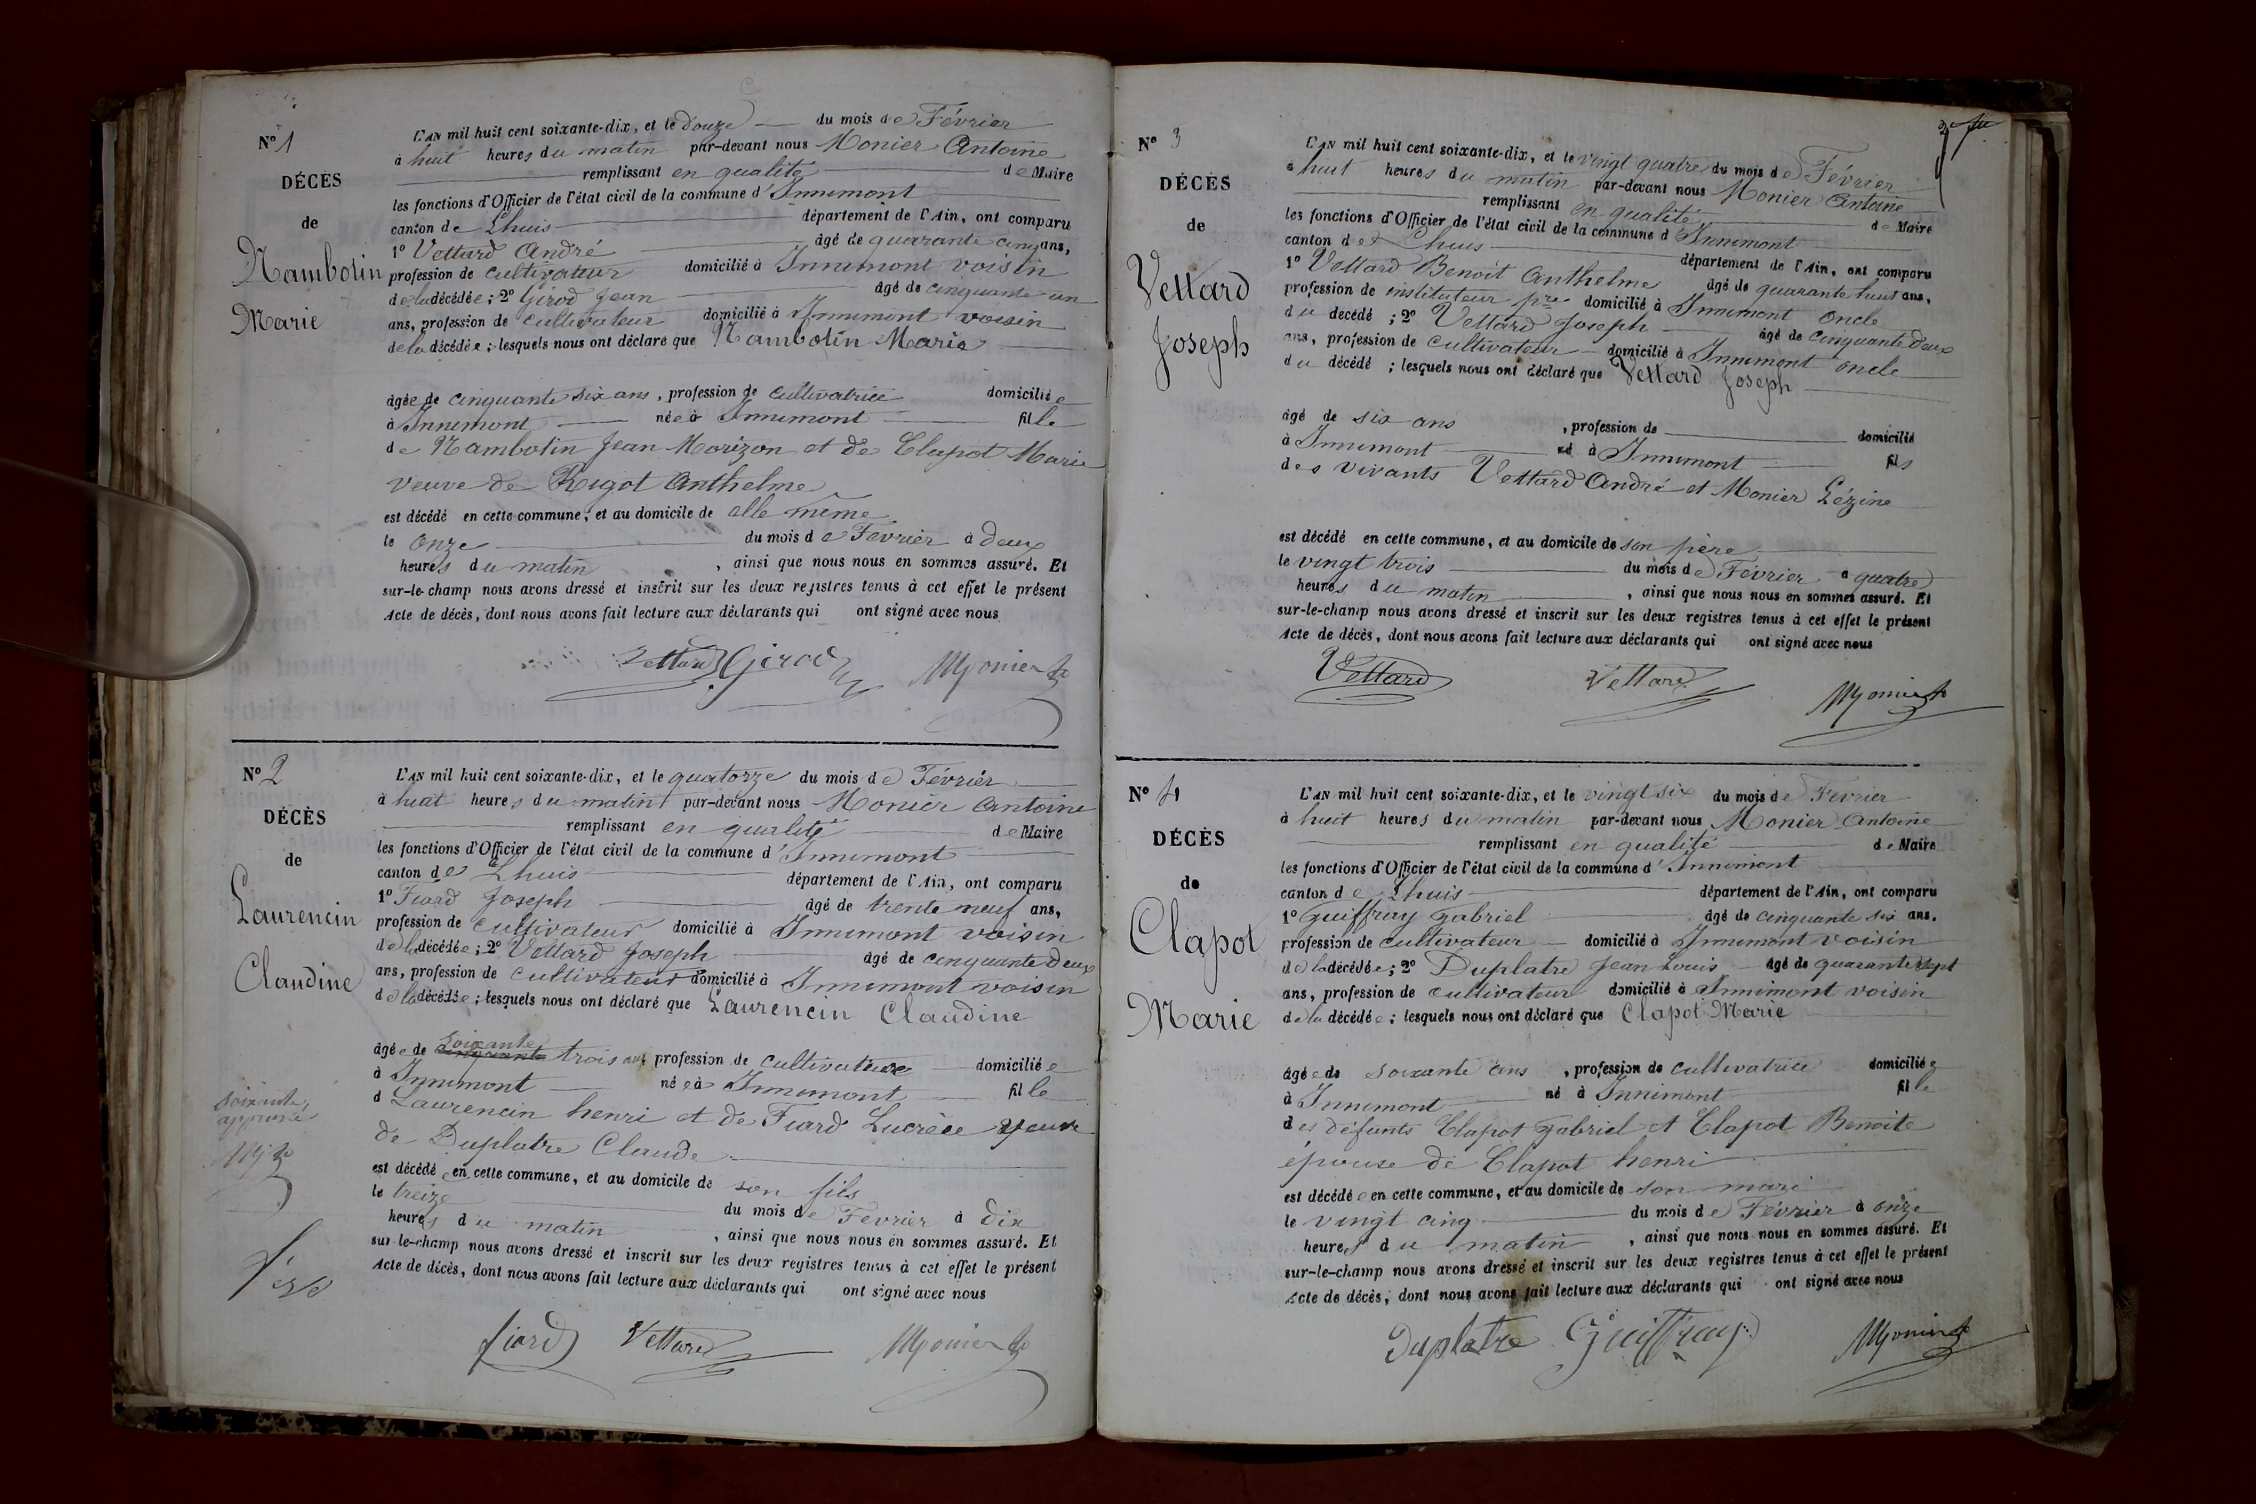 N° 1
DÉCÈS
de
Nambotin
Marie
L'AN mil huit cent soixante-dix, et le douze du mois de Février
à huit heures du matin par-devant nous Monier Antoine
remplissant en qualité de Maire
les fonctions d'Officier de l'état civil de la commune d'Innimont
canton de Lhuis département de l'Ain, ont comparu
1° Vettard André âgé de quarante cinq ans,
profession de cultivateur domicilié à Innimont voisin
de la décédée ; 2° Girod Jean âgé de cinquante un
ans, profession de cultivateur domicilié à Innimont voisin
de la décédée ; lesquels nous ont déclaré que Nambotin Marie
âgée de cinquante six ans, profession de cultivatrice domiciliée
à Innimont née à Innimont fille
de Nambotin Jean Morizon et de Clapot Marie
veuve de Rigot Anthelme
est décédé en cette commune, et au domicile de elle même
le onze du mois de Février à deux
heures du matin, ainsi que nous nous en sommes assuré. Et
sur-le-champ nous avons dressé et inscrit sur les deux registres tenus à cet effet le présent
Acte de décès, dont nous avons fait lecture aux déclarants qui ont signé avec nous
Vettard Girod Monier
N° 2
DÉCÈS
de
Laurencin
Claudine
soixante
approuvé
L'AN mil huit cent soixante-dix, et le quatorze du mois de Février
à huit heures du matin par-devant nous Monier Antoine
remplissant en qualité de Maire
les fonctions d'Officier de l'état civil de la commune d'Innimont
canton de Lhuis département de l'Ain, ont comparu
1° Fiard Joseph âgé de trente neuf ans,
profession de cultivateur domicilié à Innimont voisin
de la décédée ; 2° Vettard Joseph âgé de cinquante deux
ans, profession de cultivateur domicilié à Innimont voisin
de la décédée ; lesquels nous ont déclaré que Laurencin Claudine
soixante
âgée de cinquante trois ans profession de cultivatrice domiciliée
à Innimont née à Innimont fille
d Laurencin henri et de Fiard Lucrèce veuve
de Duplatre Claude
est décédé en cette commune, et au domicile de son fils
le treize du mois de Février à dix
heures du matin, ainsi que nous nous en sommes assuré. Et
sur-le-champ nous avons dressé et inscrit sur les deux registres tenus à cet effet le présent
Acte de décès, dont nous avons fait lecture aux déclarants qui ont signé avec nous
fiard Vettard Monier
N° 3
DÉCÈS
de
Vettard
Joseph
L'AN mil huit cent soixante-dix, et le vingt quatre du mois de Février
à huit heures du matin par-devant nous Monier Antoine
remplissant en qualité de Maire
les fonctions d'Officier de l'état civil de la commune d Innimont
canton de Lhuis département de l'Ain, ont comparu
1° Vettard Benoit Anthelme âgé de quarante huit ans,
profession de instituteur pre domicilié à Innimont oncle
du décédé ; 2° Vettard Joseph âgé de cinquante deux
ans, profession de cultivateur domicilié à Innimont oncle
du décédé ; lesquels nous ont déclaré que Vettard Joseph
âgé de six ans, profession de domicilié
à Innimont né à Innimont fils
des vivants Vettard André et Monier Lézine
est décédé en cette commune, et au domicile de son père
le vingt trois du mois de Février à quatre
heures du matin, ainsi que nous nous en sommes assuré. Et
sur-le-champ nous avons dressé et inscrit sur les deux registres tenus à cet effet le présent
Acte de décès, dont nous avons fait lecture aux déclarants qui ont signé avec nous
Vettard Vettard Monier
N° 4
DÉCÈS
de
Clapot
Marie
L'AN mil huit cent soixante-dix, et le vingt six du mois de Février
à huit heures du matin par-devant nous Monier Antoine
remplissant en qualité de Maire
les fonctions d'Officier de l'état civil de la commune d'Innimont
canton de Lhuis département de l'Ain, ont comparu
1° guiffray gabriel âgé de cinquante six ans.
profession de cultivateur domicilié à Innimont voisin
de la décédée ; 2° Duplatre Jean Louis âgé de quarante sept
ans, profession de cultivateur domicilié à Innimont voisin
de la décédée ; lesquels nous ont déclaré que Clapot Marie
âgée de soixante ans, profession de cultivatrice domiciliée
à Innimont né à Innimont fille
des défunts Clapot gabriel et Clapot Benoite
épouse de Clapot henri
est décédée en cette commune, et au domicile de son mari
le vingt cinq du mois de Février à onze
heures du matin, ainsi que nous nous en sommes assuré. Et
sur-le-champ nous avons dressé et inscrit sur les deux registres tenus à cet effet le présent
Acte de décès, dont nous avons fait lecture aux déclarants qui ont signé avec nous
Duplatre Guiffray Monier